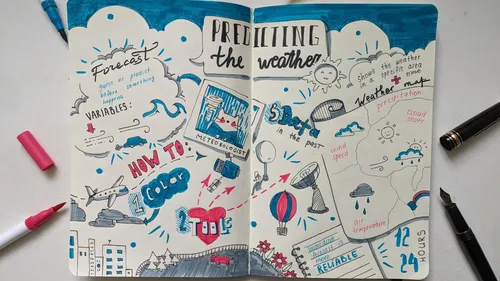 PREDICTING
the weather
Forecast
guess or predict
before something
happens
VARIABLES:
METEOROLOGIST
HOW TO:
1 COLOR
2 TOOLS
in the past
shows the weather
in a specific area
+ time
Weather map
precipitation
cloud
cover
wind
speed
air
temperature
RELIABLE
12
24
HOURS